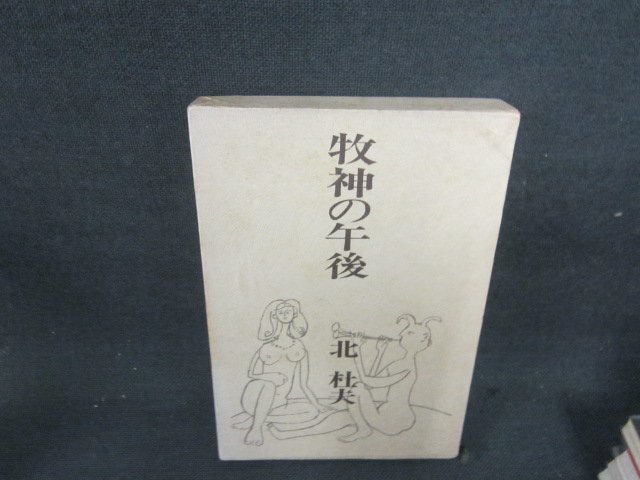 牧神の午後
北 杜夫